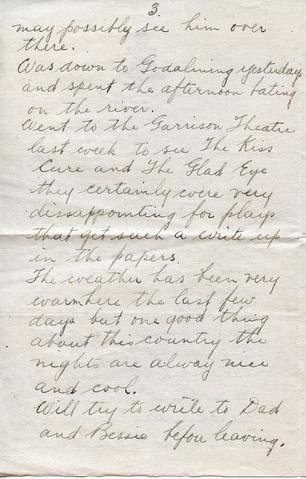 3.
may possibly see him over
there.
Was down to Godalming yesterday
and spent the afternoon bating
on the river.
Went to the Garrison Theatre
last week to see The Kiss
Cure and The Glad Eye
they certainly were very
dissappointing for plays
that get such a write up
in the papers.
The weather has been very
warmhere the last few
days but one good thing
about this country the
nights are alway nice
and cool.
Will try to write to Dad
and Bessie before leaving.